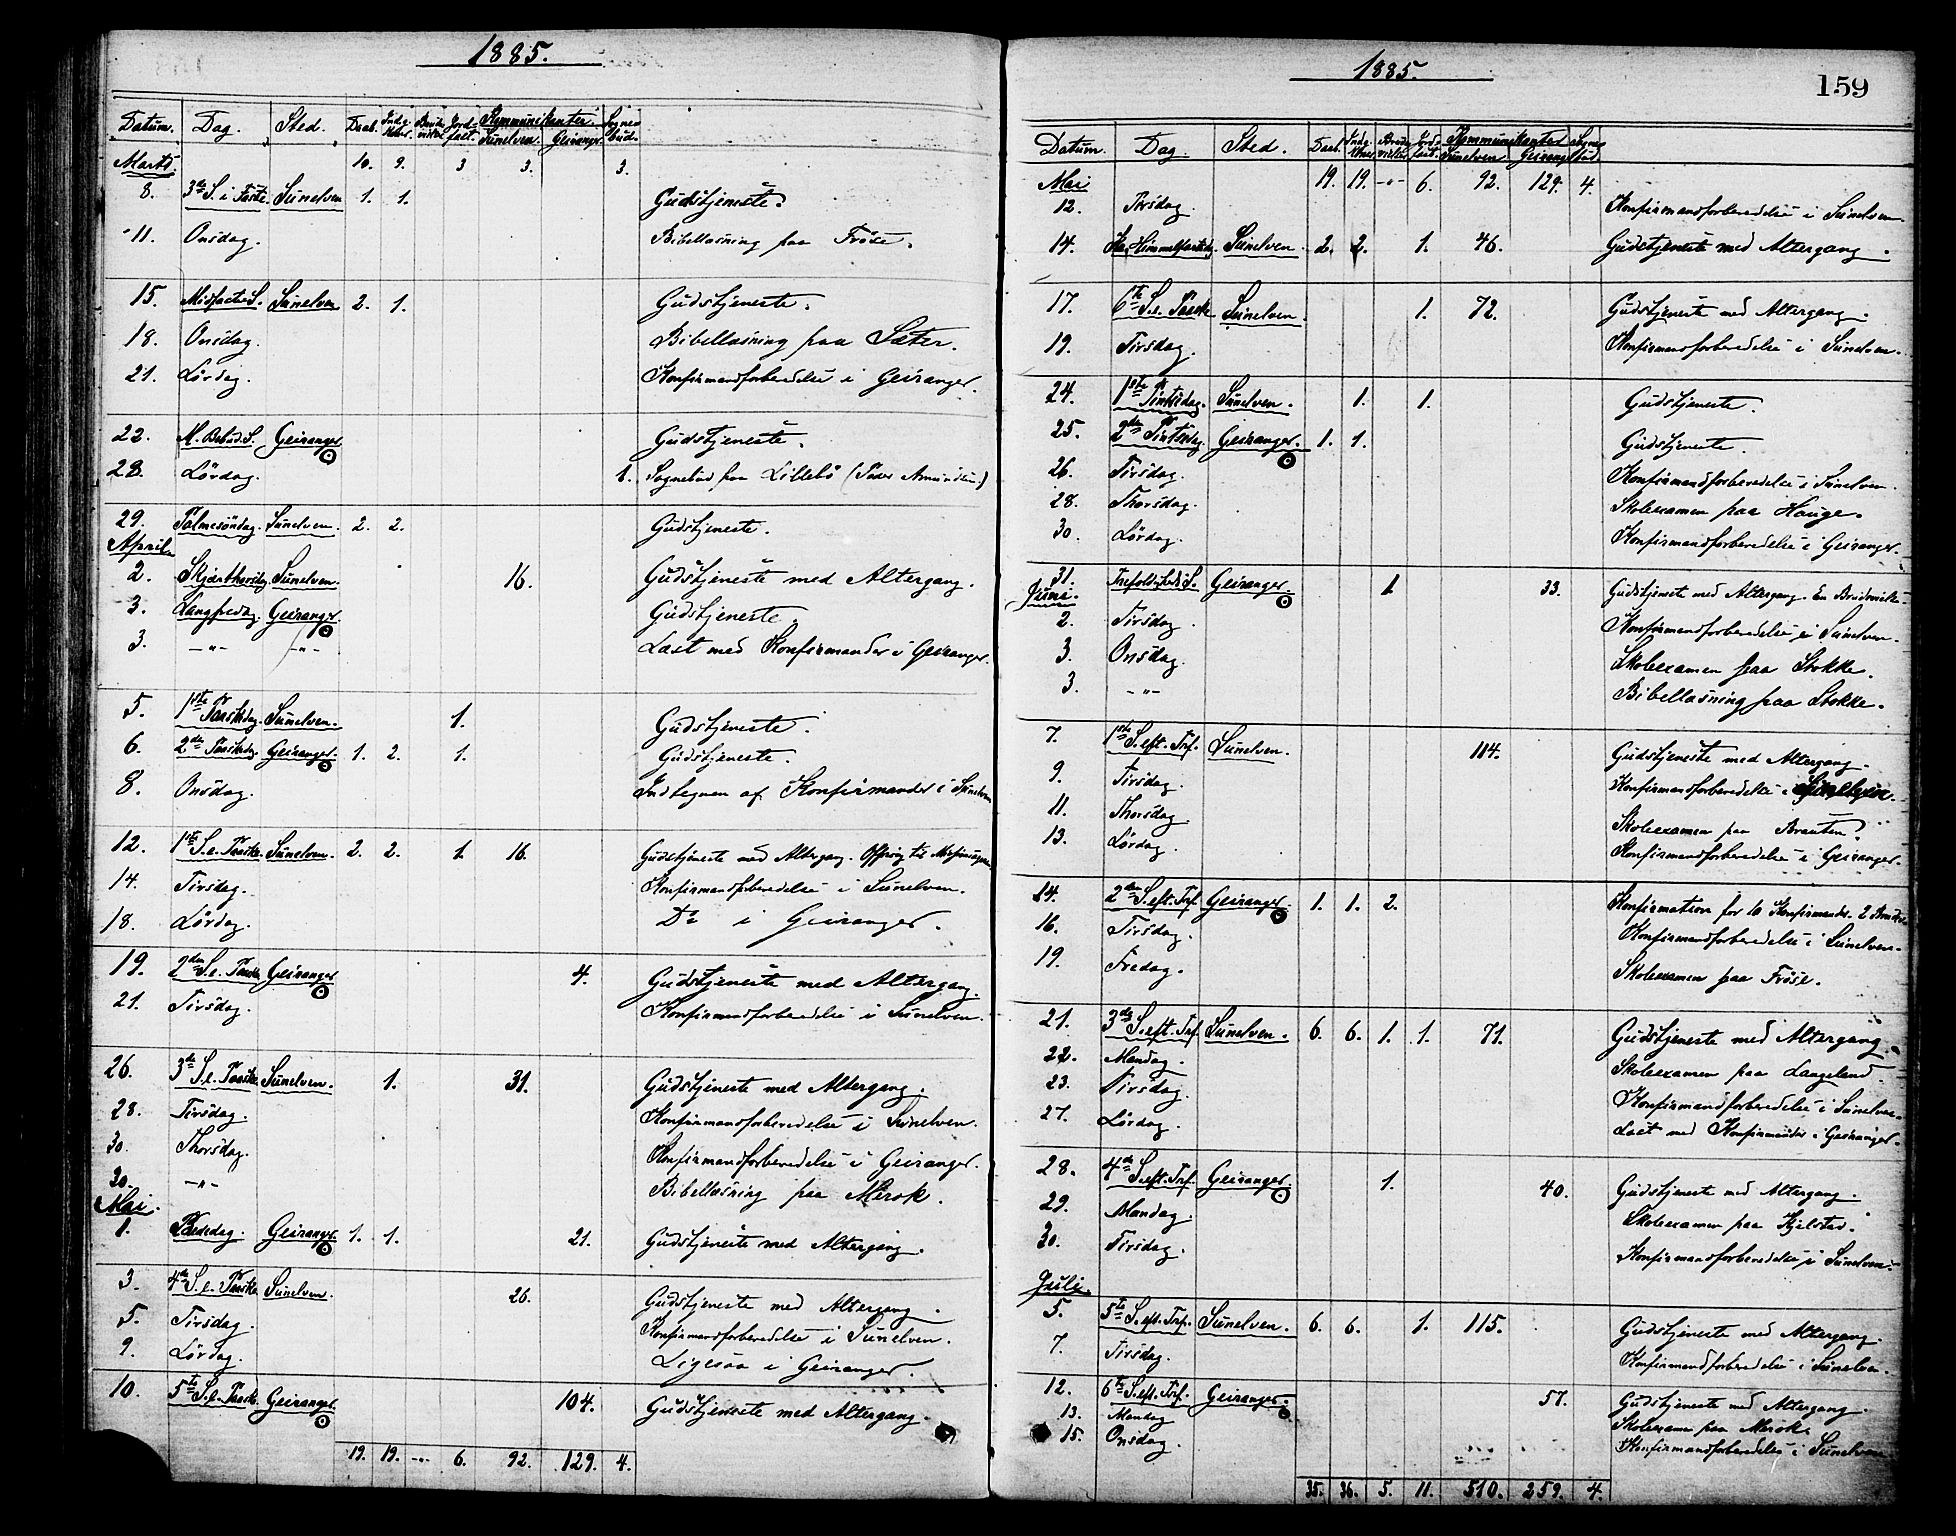 1885.
Datum. Dag. Sted. Daab. Indg. Koner. Jord- fæst. Kommunikanter. Sünelven. Geiranger. Sogne- bud.
Marts. 10. 9. 3 3. 3.
8. 3die S. i Faste. Sünelven 1. 1. Gudstjeneste.
11. Onsdag. Bibellæsning paa Fröse.
15. Midfaste S. Sünelven 2. 1. Gudstjeneste.
18. Onsdag. Bibellæsning paa Sæter.
21. Lördag. Konfirmandforberedelse i Geiranger.
22. M. Bebud. S. Geiranger Gudstjeneste.
28. Lördag. 1. Sognebud paa Lillebö (Peder Amundsen.)
29. Palmesöndag. Sünelven. 2. 2. Gudstjeneste.
April
2. Skjærthorsdag Sünelven. 16. Gudstjeneste med Altergang.
3. Langfredag Geiranger. Gudstjeneste.
3. -"- -"- Læst med Konfirmander i Geiranger.
5. 1ste Paaskedag. Sünelven. 1. Gudstjeneste.
6. 2den Paaskedag. Geiranger. 1. 2. 1. Gudstjeneste.
8. Onsdag. Indtegnen af Konfirmander i Sünelven
12. 1ste S. e. Paaske. Sünelven. 2. 2. 1. 16. Gudstjeneste med Altergang. Offring til
14. Tirsdag. Konfirmandforberedelse i Sünelven.
18. Lördag. Do i Geiranger.
19. 2den S. e. Paaske Geiranger 4. Gudstjeneste med Altergang.
21. Tirsdag. Konfirmandforberedelse i Sünelven.
26. 3die S. e. Paaske. Sünelven. 1. 31. Gudstjeneste med Altergang.
28. Tirsdag. Konfirmandforberedelse i Sünelven.
30. Thorsdag. Konfirmandforberedelse i Geiranger.
30. -"- Bibellæsning paa Merok.
Mai.
1. Bededag. Geiranger. 1. 1. 21. Gudstjeneste med Altergang.
3. 4de S. e. Paaske Sünelven. 26. Gudstjeneste med Altergang.
5. Tirsdag. Konfirmandforberedelse i Sünelven.
9. Lördag. Ligesaa i Geiranger.
10. 5te S. e. Paaske. Geiranger. 104. Gudstjeneste med Altergang.
19. 19. -"- 6. 92. 129. 4.
1885.
159
Datum. Dag. Sted. Daab. Indg. Koner Brude- vielser Jord- fæst. Kommunikanter Sünelven. Geiranger Sogne- bud
Mai 19. 19. -"- 6. 92. 129. 4.
12. Tirsdag. Konfirmandforberedelse i Sünelven.
14. Kr. Himmelfartsdg. Sünelven. 2. 2. 1. 46. Gudstjeneste med Altergang.
17. 6te S. e. Paaske Sünelven. 1. 72. Gudstjeneste med Altergang.
19. Tirsdag. Konfirmandforberedelse i Sünelven.
24. 1ste Pintsedag. Sünelven. 1. 1. Gudstjeneste.
25. 2den Pintsedag. Geiranger. 1. 1. Gudstjeneste.
26. Tirsdag. Konfirmandforberedelse i Sünelven.
28. Thorsdag. Skoleexamen paa Hauge.
30. Lördag. Konfirmandforberedelse i Geiranger.
31. Trefoldigheds S. Geiranger. 1 33. Gudstjeneste med Altergang. En Brudevielse.
Juni.
2. Tirsdag. Konfirmandforberedelse i Sünelven.
3. Onsdag. Skoleexamen paa Stokke.
3. -"- Bibellæsning paa Stokke.
7. 1ste S. eft. Trf. Sünelven. 114. Gudstjeneste med Altergang.
9. Tirsdag. Konfirmandforberedelse i Sünelven.
11. Thorsdag. Skoleexamen paa Braaten.
13. Lördag. Konfirmandforberedelse i Geiranger.
14. 2den S. eft. Trf. Geiranger. 1. 1. 2. Konfirmation for 10 Konfirmander. 2
16. Tirsdag. Konfirmandforberedelse i Sünelven.
19. Fredag. Skoleexamen paa Fröse.
21. 3die S. eft. Trf. Sünelven. 6. 6. 1. 1. 71. Gudstjeneste med Altergang.
22. Mandag. Skoleexamen paa Langeland.
23. Tirsdag. Konfirmandforberedelse i Sünelven.
27. Lördag. Læst med Konfirmander i Geiranger.
28. 4de S. eft. Trf. Geiranger. 1. 40. Gudstjeneste med Altergang.
29. Mandag. Skoleexamen paa Hjelstad.
30. Tirsdag. Konfirmandforberedelse i Sünelven.
Juli.
5. 5te S. eft. Trf. Sünelven. 6. 6. 1. 115. Gudstjeneste med Altergang.
7. Tirsdag. Konfirmandforberedelse i Sünelven.
12. 6te S. eft. Trf. Geiranger. 57. Gudstjeneste med Altergang.
13. Mandag Skoleexam. paa Merok.
15. Onsdag. Konfirmandforberedelse i Sünelven
35. 36. 5. 11. 510. 259. 4.